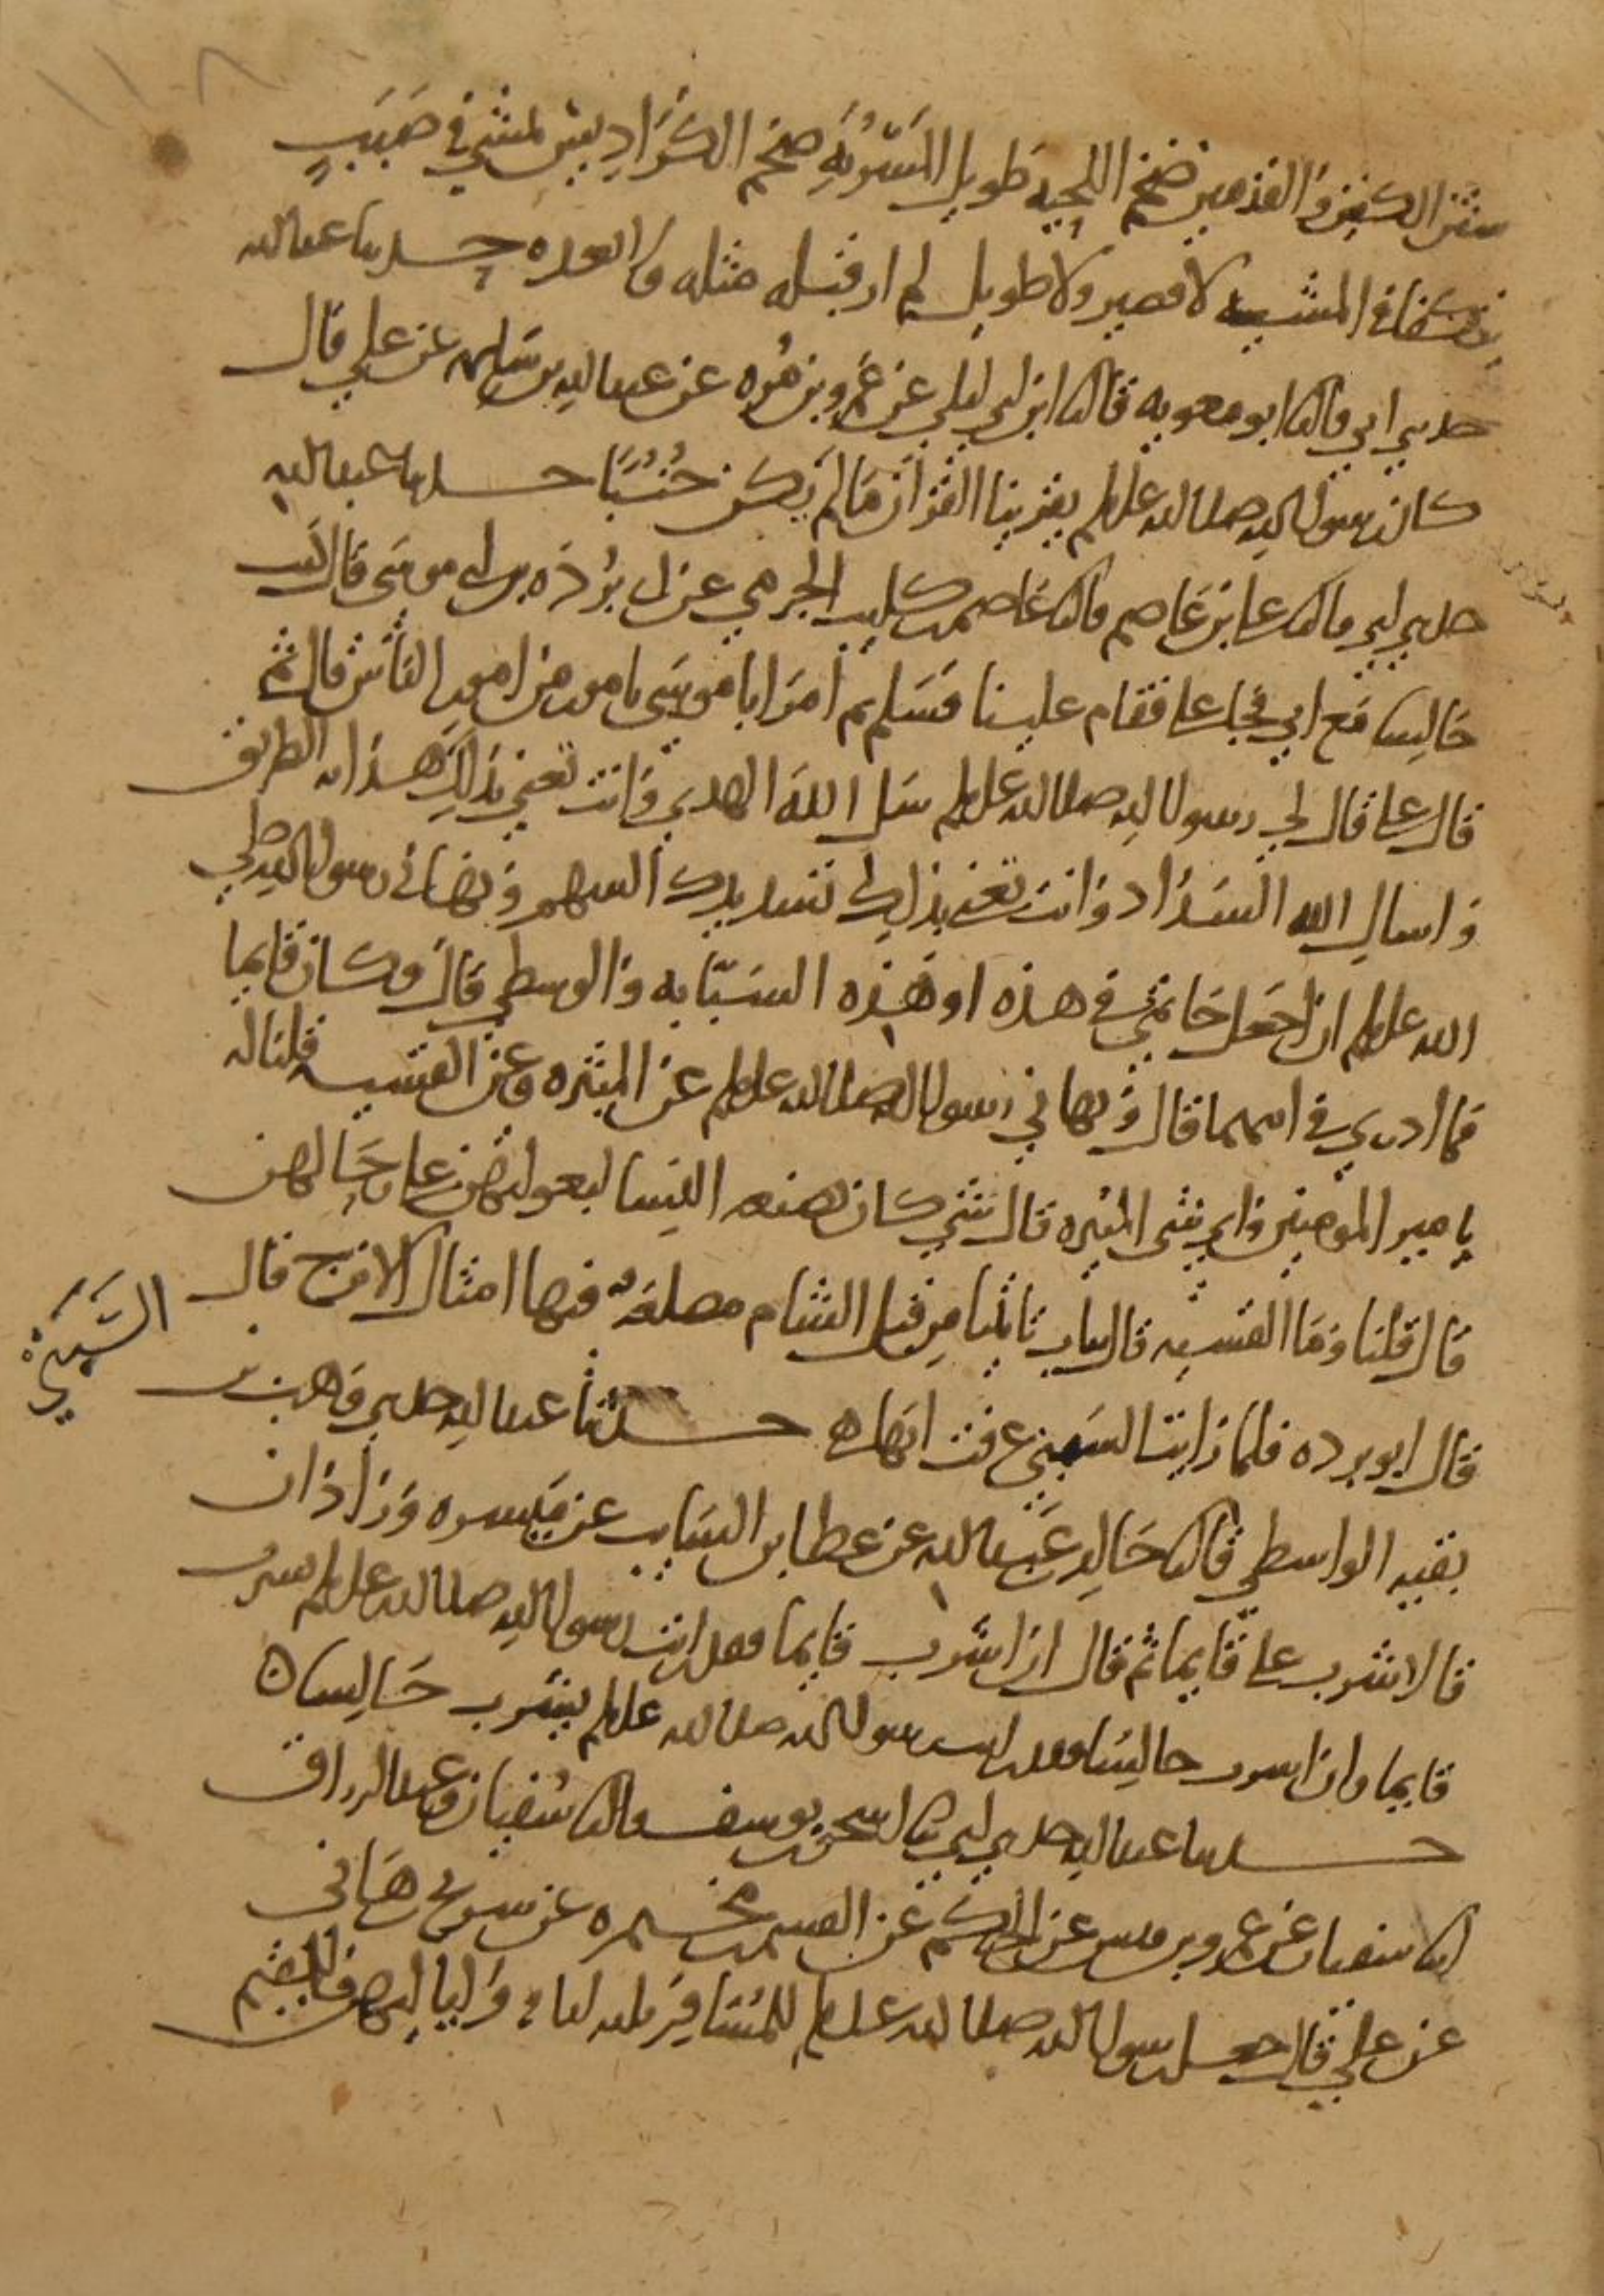 ١١٨
شثن الكفين والقدمين ضخم اللحيه طويل المسربه ضخم الكراديس يمشي في صبب
يتكفا في المشيه لا قصير ولا طويل لم ار قبله مثله ولا بعده حدثنا عبد الله
حدثني ابي قال ثنا ابو معويه قال ثنا ابن ابي ليلي عن عمرو بن مره عن عبد الله بن سلمه عن علي قال
كان رسول الله صلى الله عليه وسلم يقرينا القرآن ما لم يكن جنبا حدثنا عبد الله
حدثني ابي قال ثنا علي بن عاصم قال ثنا عاصم بن كليب الجرمي عن ابي برده بن ابي موسى قال كنت
جالسا مع ابي فجا علي فقام علينا فسلم ثم امر ابا موسى بامور من امور الناس قال ثم
قال علي قال لي رسول الله صلى الله عليه وسلم سل الله الهدي وانت تعني بذلك هدايه الطريق
واسال الله السداد وانت تعني بذلك تسديدك السهم ونهاني رسول الله صلى
الله عليه وسلم ان اجعل خاتمي في هذه او هذه السبابه والوسطي قال وكان قايما
فما ادري في ايهما قال ونهاني رسول الله صلى الله عليه وسلم عن الميثره وعن القسيه قلنا له
يا امير المومنين واي شى الميثره قال شي كان يصنعه النسا لبعولتهن علي رحالهن
قال قلنا وما القسيه قال ثياب تاتينا من قبل الشام مضلعه فيها امثال الاترج قال
قال ابو برده فلما رايت السبني عرفت انها هي حدثنا عبد الله حدثني وهب بن
السَّبَنِيّ
بقيه الواسطي قال ثنا خالد بن عبد الله عن عطا بن السايب عن ميسره وزاذان
قالا شرب علي قايما ثم قال ان اشرب قايما فقد رايت رسول الله صلى الله عليه وسلم يشرب
قايما وان اشرب جالسا فقد رايت رسول الله صلى الله عليه وسلم يشرب جالسا
حدثنا عبد الله حدثني ابي ثنا اسحق بن يوسف قال ثنا سفيان وعبد الرزاق
انا سفيان عن عمرو بن قيس عن الحكم عن القسم بن مخيمره عن شريح بن هاني
عن علي قال جعل رسول الله صلى الله عليه وسلم للمسافر ثلثه ايام ولياليهن وللمقيم